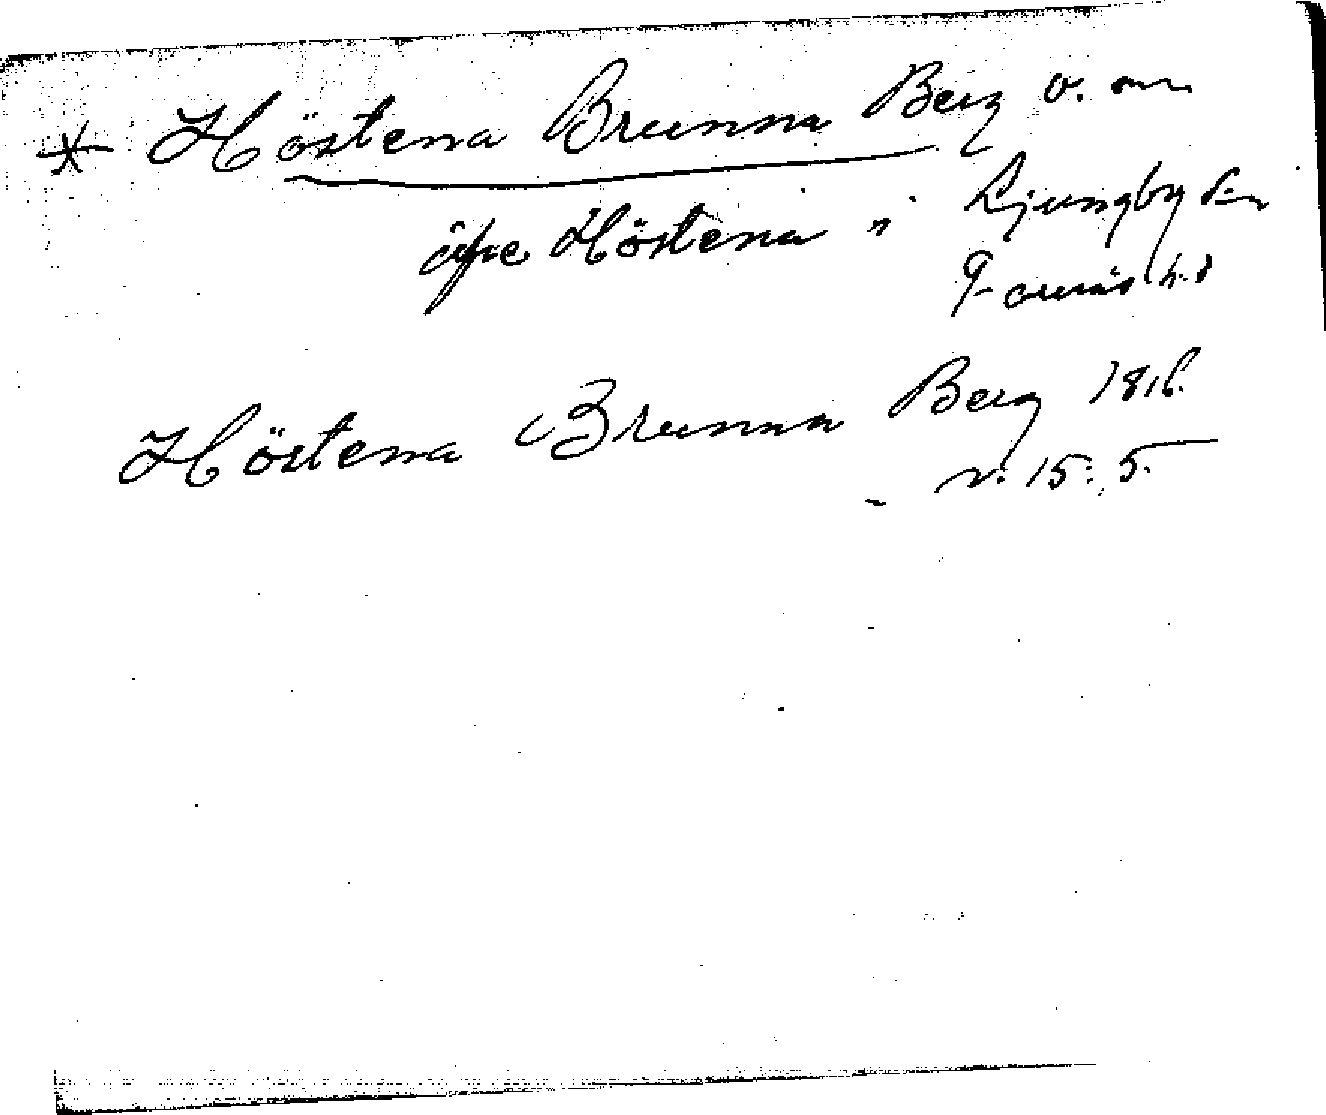 * Höstena Brunna Berg o. om
Höstena " Ljungby sn
Faurås hd
Höstena Brunna Berg 1816.
n: 15: 5.